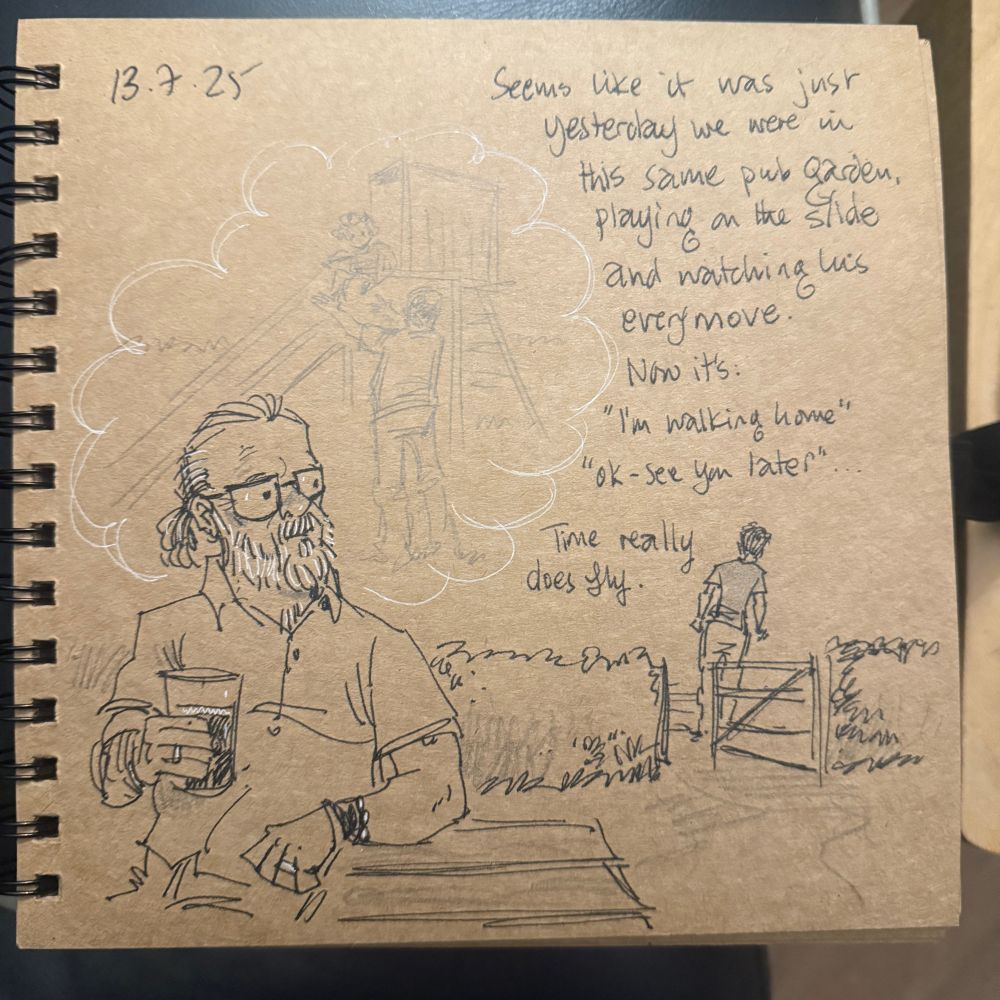 13.7.25
Seems like it was just
yesterday we were in
this same pub garden,
playing on the slide
and watching his
every move.
Now it's:
"I'm walking home"
"ok - see you later"...
Time really
does fly.